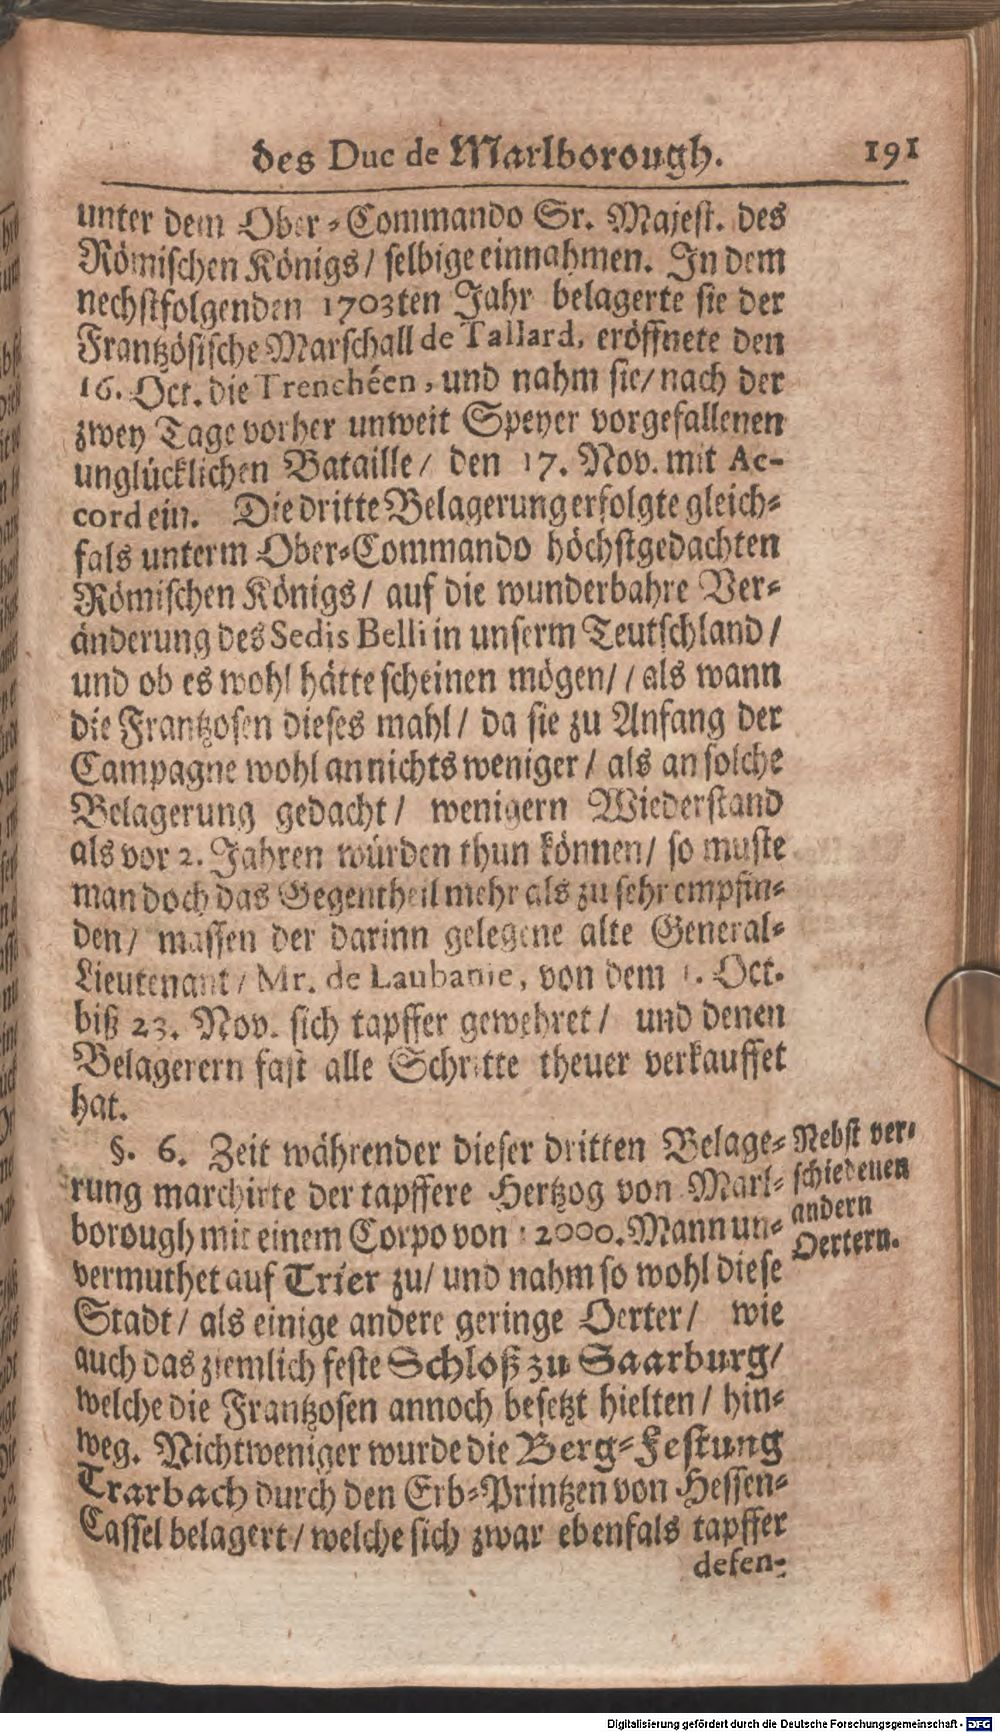 des Duc de Marlborough. 191
unter dem Ober-Commando Sr. Majest. des
Römischen Königs/ selbige einnahmen. In dem
nechstfolgenden 1703ten Jahr belagerte sie der
Frantzösische Marschall de Tallard, eröffnete den
16. Oct. die Trenchéen, und nahm sie/ nach der
zwey Tage vorher unweit Speyer vorgefallenen
unglücklichen Bataille/ den 17. Nov. mit Ac-
cord ein. Die dritte Belagerung erfolgte gleich-
fals unterm Ober-Commando höchstgedachten
Römischen Königs/ auf die wunderbahre Ver-
änderung des Sedis Belli in unserm Teutschland/
und ob es wohl hätte scheinen mögen/ / als wann
die Frantzosen dieses mahl/ da sie zu Anfang der
Campagne wohl an nichts weniger/ als an solche
Belagerung gedacht/ wenigern Wiederstand
als vor 2. Jahren würden thun können/ so muste
man doch das Gegentheil mehr als zu sehr empfin-
den/ massen der darinn gelegene alte General-
Lieutenant/ Mr. de Laubanie, von dem 1. Oct.
biß 23. Nov. sich tapffer gewehret/ und denen
Belagerern fast alle Schritte theuer verkauffet
hat.
§. 6. Zeit währender dieser dritten Belage-
rung marchirte der tapffere Hertzog von Marl-
borough mit einem Corpo von 12000. Mann un-
vermuthet auf Trier zu/ und nahm so wohl diese
Stadt/ als einige andere geringe Oerter/ wie
auch das ziemlich feste Schloß zu Saarburg/
welche die Frantzosen annoch besetzt hielten/ hin-
weg. Nicht weniger wurde die Berg-Festung
Trarbach durch den Erb-Printzen von Hessen-
Cassel belagert/ welche sich zwar ebenfals tapffer
defen-
Nebst ver-
schiedenen
andern
Oertern.
Digitalisierung gefördert durch die Deutsche Forschungsgemeinschaft - DFG